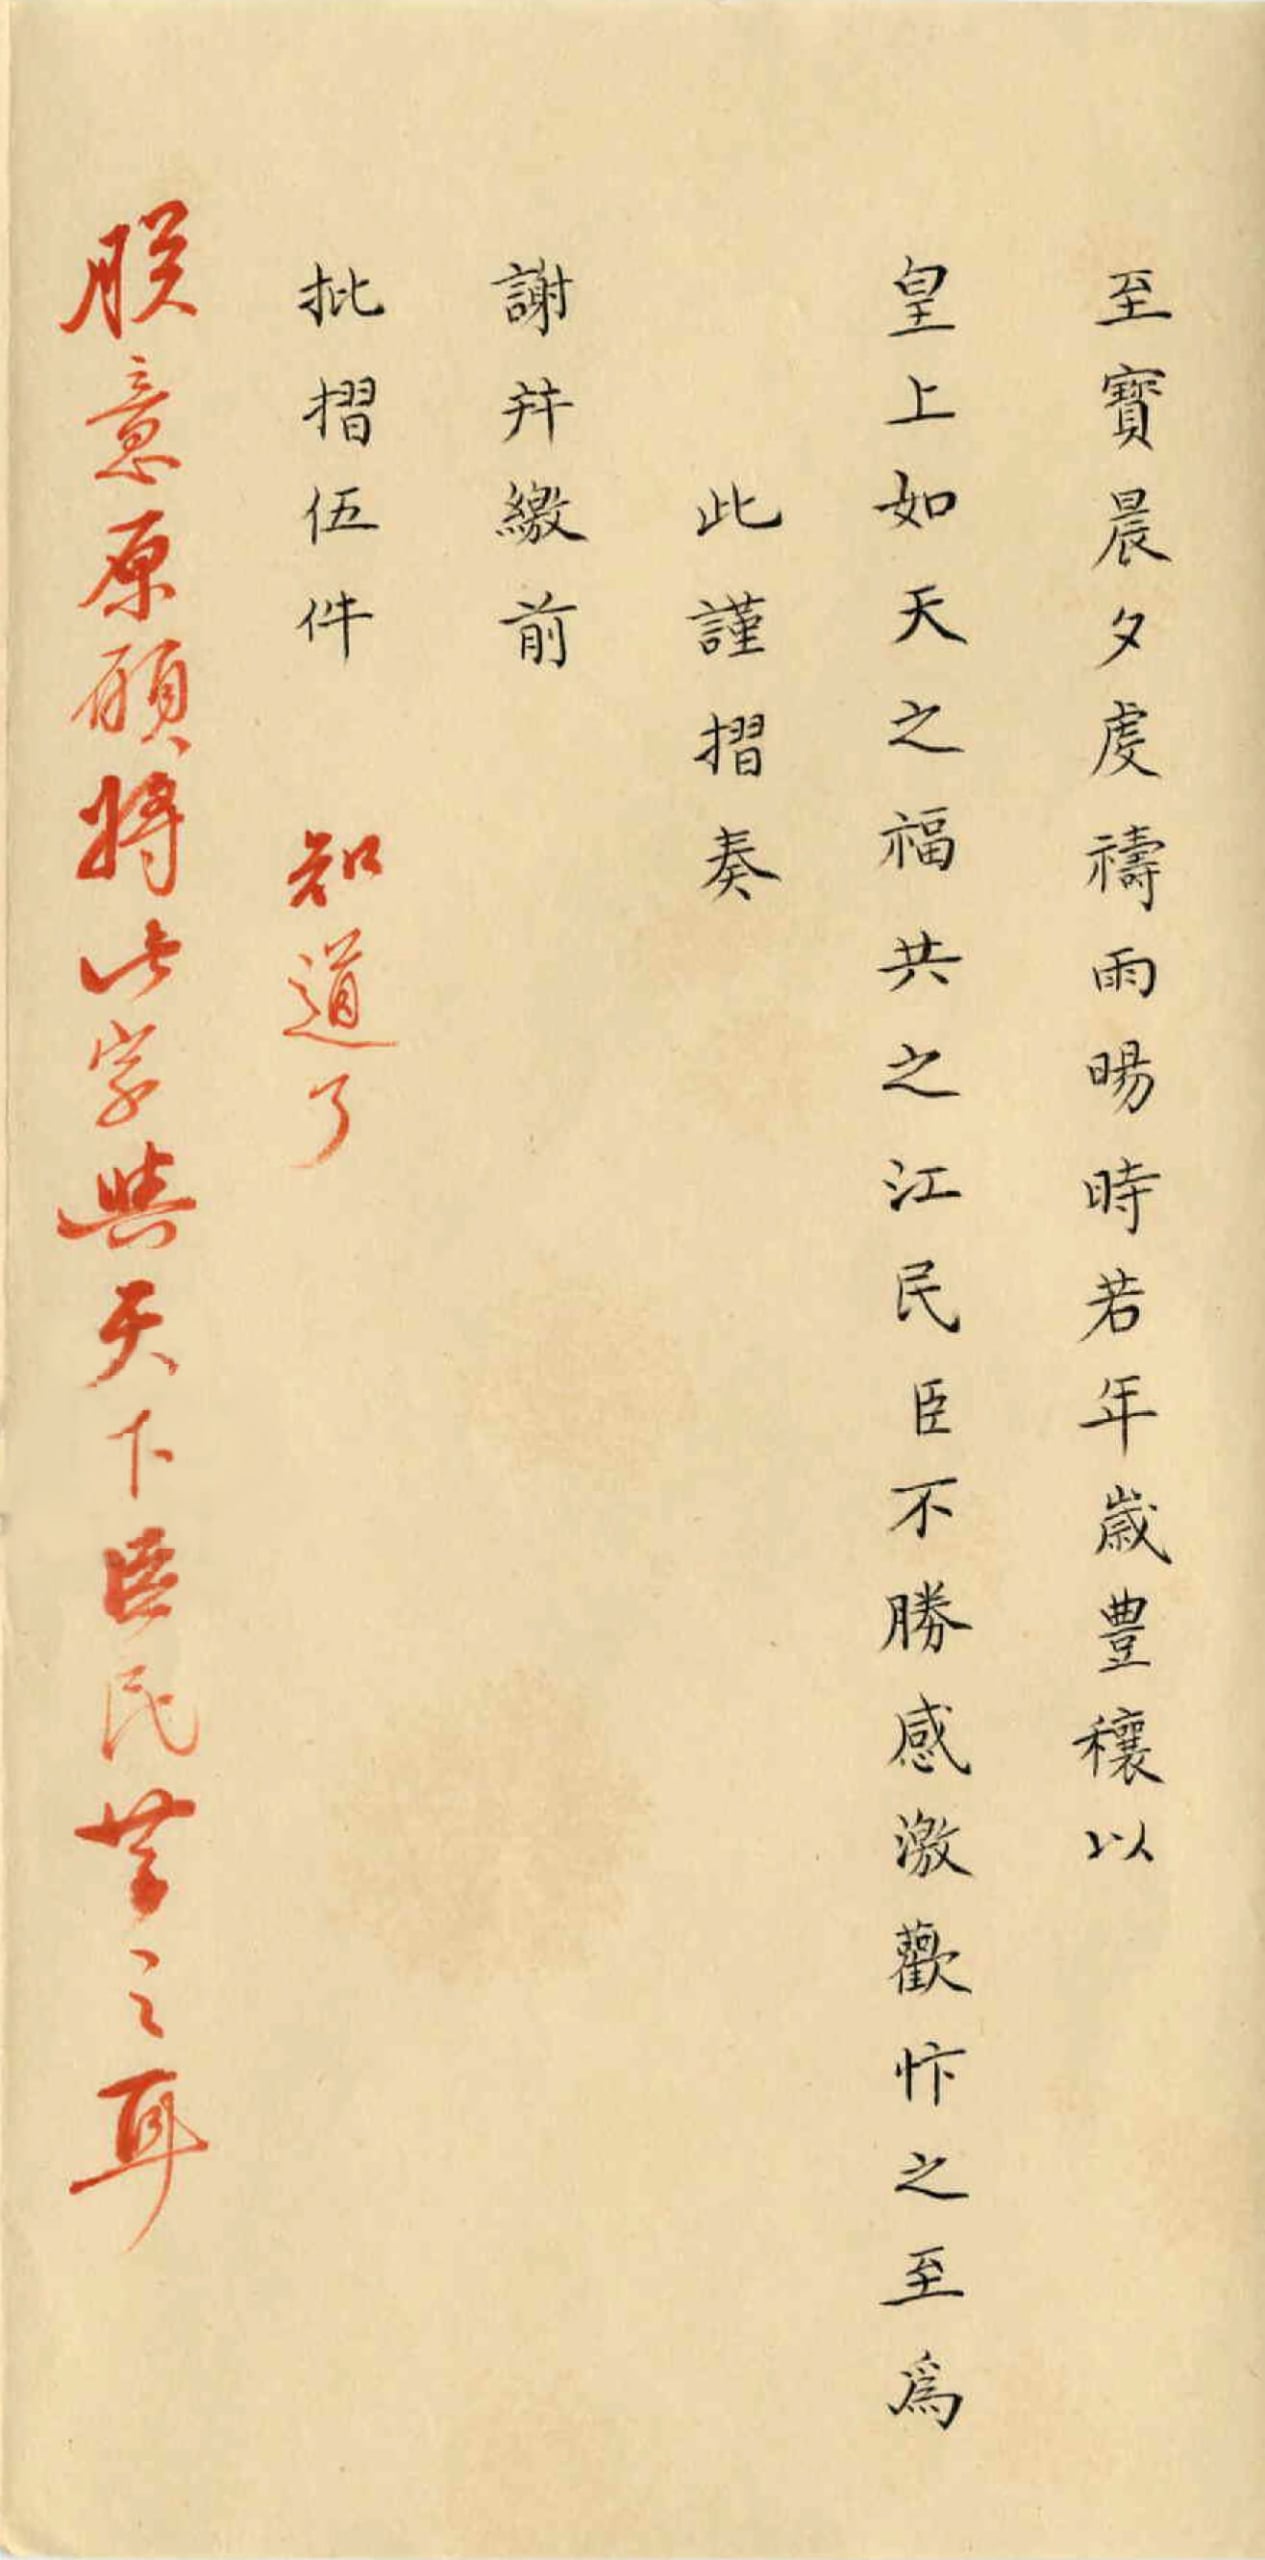 至寳晨夕虔禱雨暘時若年歲豊穰以
皇上如天之福共之江民臣不勝感激歡忭之至爲
此謹摺奏
謝并繳前
批摺伍件 知道了
朕意原願將此字與天下臣民共之耳